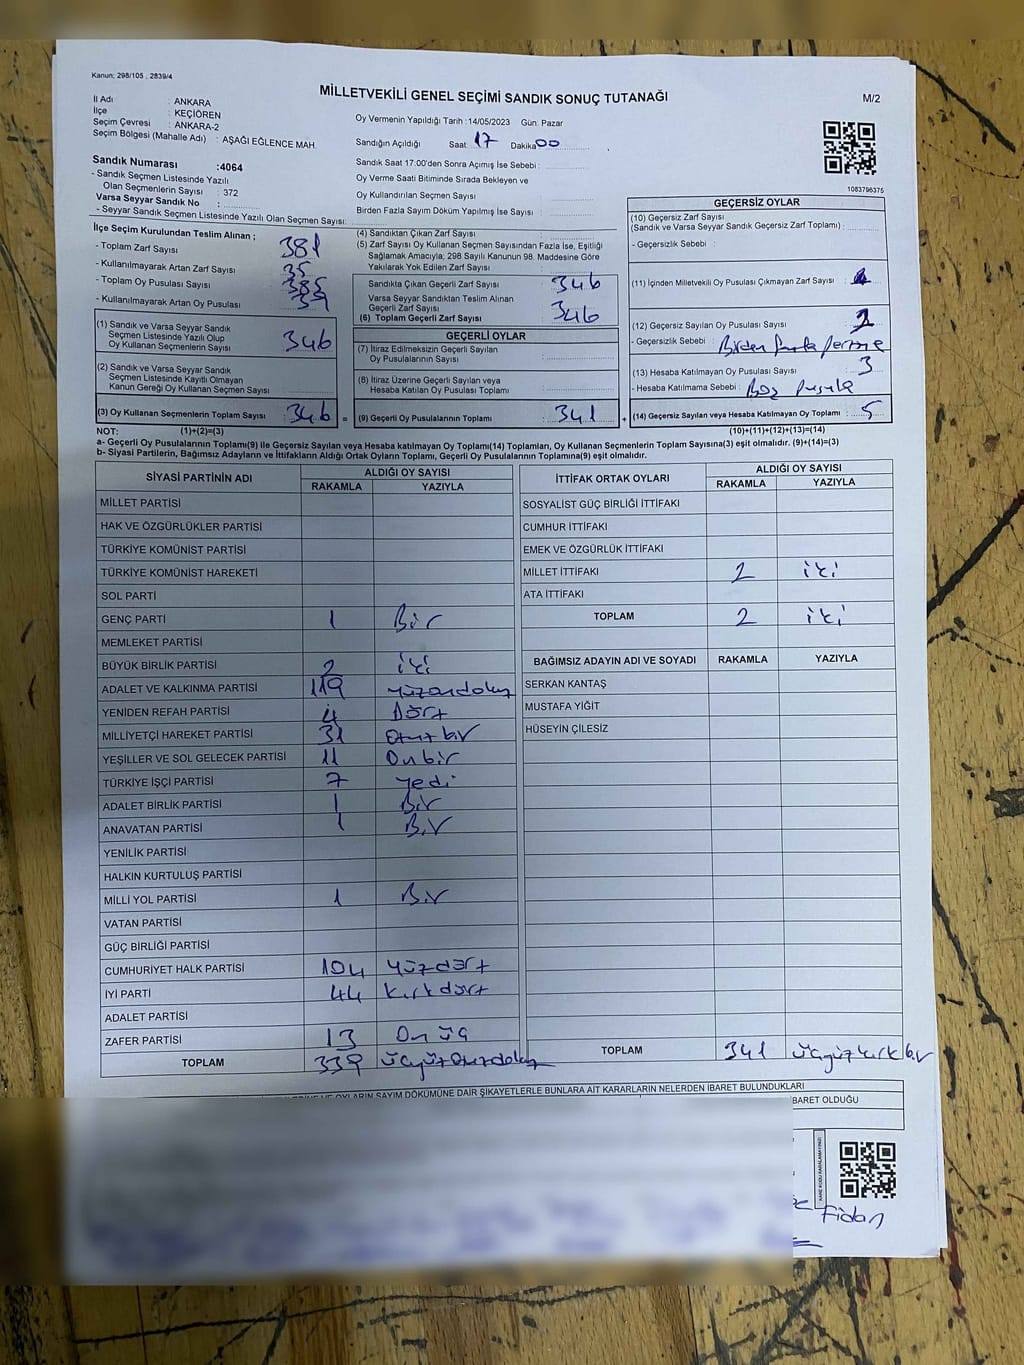 Kanun; 298/105 , 2839/4
MİLLETVEKİLİ GENEL SEÇİMİ SANDIK SONUÇ TUTANAĞI
M/2
İl Adı : ANKARA
İlçe : KEÇİÖREN
Seçim Çevresi : ANKARA-2
Seçim Bölgesi (Mahalle Adı) : AŞAĞI EĞLENCE MAH.
Sandık Numarası :4064
- Sandık Seçmen Listesinde Yazılı
Olan Seçmenlerin Sayısı : 372
Varsa Seyyar Sandık No :
- Seyyar Sandık Seçmen Listesinde Yazılı Olan Seçmen Sayısı:
Oy Vermenin Yapıldığı Tarih :14/05/2023 Gün: Pazar
Sandığın Açıldığı Saat: 17 Dakika 00
Sandık Saat 17:00'den Sonra Açımış İse Sebebi :
Oy Verme Saati Bitiminde Sırada Bekleyen ve
Oy Kullandırılan Seçmen Sayısı :
Birden Fazla Sayım Döküm Yapılmış İse Sayısı :
1083796375
İlçe Seçim Kurulundan Teslim Alınan ;
- Toplam Zarf Sayısı 381
- Kullanılmayarak Artan Zarf Sayısı 35
- Toplam Oy Pusulası Sayısı 385
- Kullanılmayarak Artan Oy Pusulası 39
(1) Sandık ve Varsa Seyyar Sandık
Seçmen Listesinde Yazılı Olup
Oy Kullanan Seçmenlerin Sayısı 346
(2) Sandık ve Varsa Seyyar Sandık
Seçmen Listesinde Kayıtlı Olmayan
Kanun Gereği Oy Kullanan Seçmen Sayısı
(3) Oy Kullanan Seçmenlerin Toplam Sayısı 346 =
(4) Sandıktan Çıkan Zarf Sayısı :
(5) Zarf Sayısı Oy Kullanan Seçmen Sayısından Fazla İse, Eşitliği
Sağlamak Amacıyla; 298 Sayılı Kanunun 98. Maddesine Göre
Yakılarak Yok Edilen Zarf Sayısı :
Sandıkta Çıkan Geçerli Zarf Sayısı : 346
Varsa Seyyar Sandıktan Teslim Alınan
Geçerli Zarf Sayısı :
(6) Toplam Geçerli Zarf Sayısı : 346
GEÇERLİ OYLAR
(7) İtiraz Edilmeksizin Geçerli Sayılan
Oy Pusulalarının Sayısı :
(8) İtiraz Üzerine Geçerli Sayılan veya
Hesaba Katılan Oy Pusulası Toplamı :
(9) Geçerli Oy Pusulalarının Toplamı : 341 +
GEÇERSİZ OYLAR
(10) Geçersiz Zarf Sayısı
(Sandık ve Varsa Seyyar Sandık Geçersiz Zarf Toplamı) :
- Geçersizlik Sebebi :
(11) İçinden Milletvekili Oy Pusulası Çıkmayan Zarf Sayısı :
(12) Geçersiz Sayılan Oy Pusulası Sayısı : 2
- Geçersizlik Sebebi : Birden fazla
(13) Hesaba Katılmayan Oy Pusulası Sayısı : 3
- Hesaba Katılmama Sebebi : Boş pusula
(14) Geçersiz Sayılan veya Hesaba Katılmayan Oy Toplamı : 5
NOT: (1)+(2)=(3) (10)+(11)+(12)+(13)=(14)
a- Geçerli Oy Pusulalarının Toplamı(9) ile Geçersiz Sayılan veya Hesaba katılmayan Oy Toplamı(14) Toplamları, Oy Kullanan Seçmenlerin Toplam Sayısına(3) eşit olmalıdır. (9)+(14)=(3)
b- Siyasi Partilerin, Bağımsız Adayların ve İttifakların Aldığı Ortak Oyların Toplamı, Geçerli Oy Pusulalarının Toplamına(9) eşit olmalıdır.
SİYASİ PARTİNİN ADI ALDIĞI OY SAYISI
RAKAMLA YAZIYLA
MİLLET PARTİSİ
HAK VE ÖZGÜRLÜKLER PARTİSİ
TÜRKİYE KOMÜNİST PARTİSİ
TÜRKİYE KOMÜNİST HAREKETİ
SOL PARTİ
GENÇ PARTİ 1 Bir
MEMLEKET PARTİSİ
BÜYÜK BİRLİK PARTİSİ 2 iki
ADALET VE KALKINMA PARTİSİ 119 yüzondokuz
YENİDEN REFAH PARTİSİ 4 Dört
MİLLİYETÇİ HAREKET PARTİSİ 31 otuzbir
YEŞİLLER VE SOL GELECEK PARTİSİ 11 Onbir
TÜRKİYE İŞÇİ PARTİSİ 7 yedi
ADALET BİRLİK PARTİSİ 1 Bir
ANAVATAN PARTİSİ 1 Bir
YENİLİK PARTİSİ
HALKIN KURTULUŞ PARTİSİ
MİLLİ YOL PARTİSİ 1 Bir
VATAN PARTİSİ
GÜÇ BİRLİĞİ PARTİSİ
CUMHURİYET HALK PARTİSİ 104 yüzdört
İYİ PARTİ 44 kırkdört
ADALET PARTİSİ
ZAFER PARTİSİ 13 On üç
TOPLAM 339 üçyüzotuzdokuz
İTTİFAK ORTAK OYLARI ALDIĞI OY SAYISI
RAKAMLA YAZIYLA
SOSYALİST GÜÇ BİRLİĞİ İTTİFAKI
CUMHUR İTTİFAKI
EMEK VE ÖZGÜRLÜK İTTİFAKI
MİLLET İTTİFAKI 2 iki
ATA İTTİFAKI
TOPLAM 2 iki
BAĞIMSIZ ADAYIN ADI VE SOYADI RAKAMLA YAZIYLA
SERKAN KANTAŞ
MUSTAFA YİĞİT
HÜSEYİN ÇİLESİZ
TOPLAM 341 üçyüzkırkbir
VE OYLARIN SAYIM DÖKÜMÜNE DAİR ŞİKAYETLERLE BUNLARA AİT KARARLARIN NELERDEN İBARET BULUNDUKLARI
İBARET OLDUĞU
Fidan